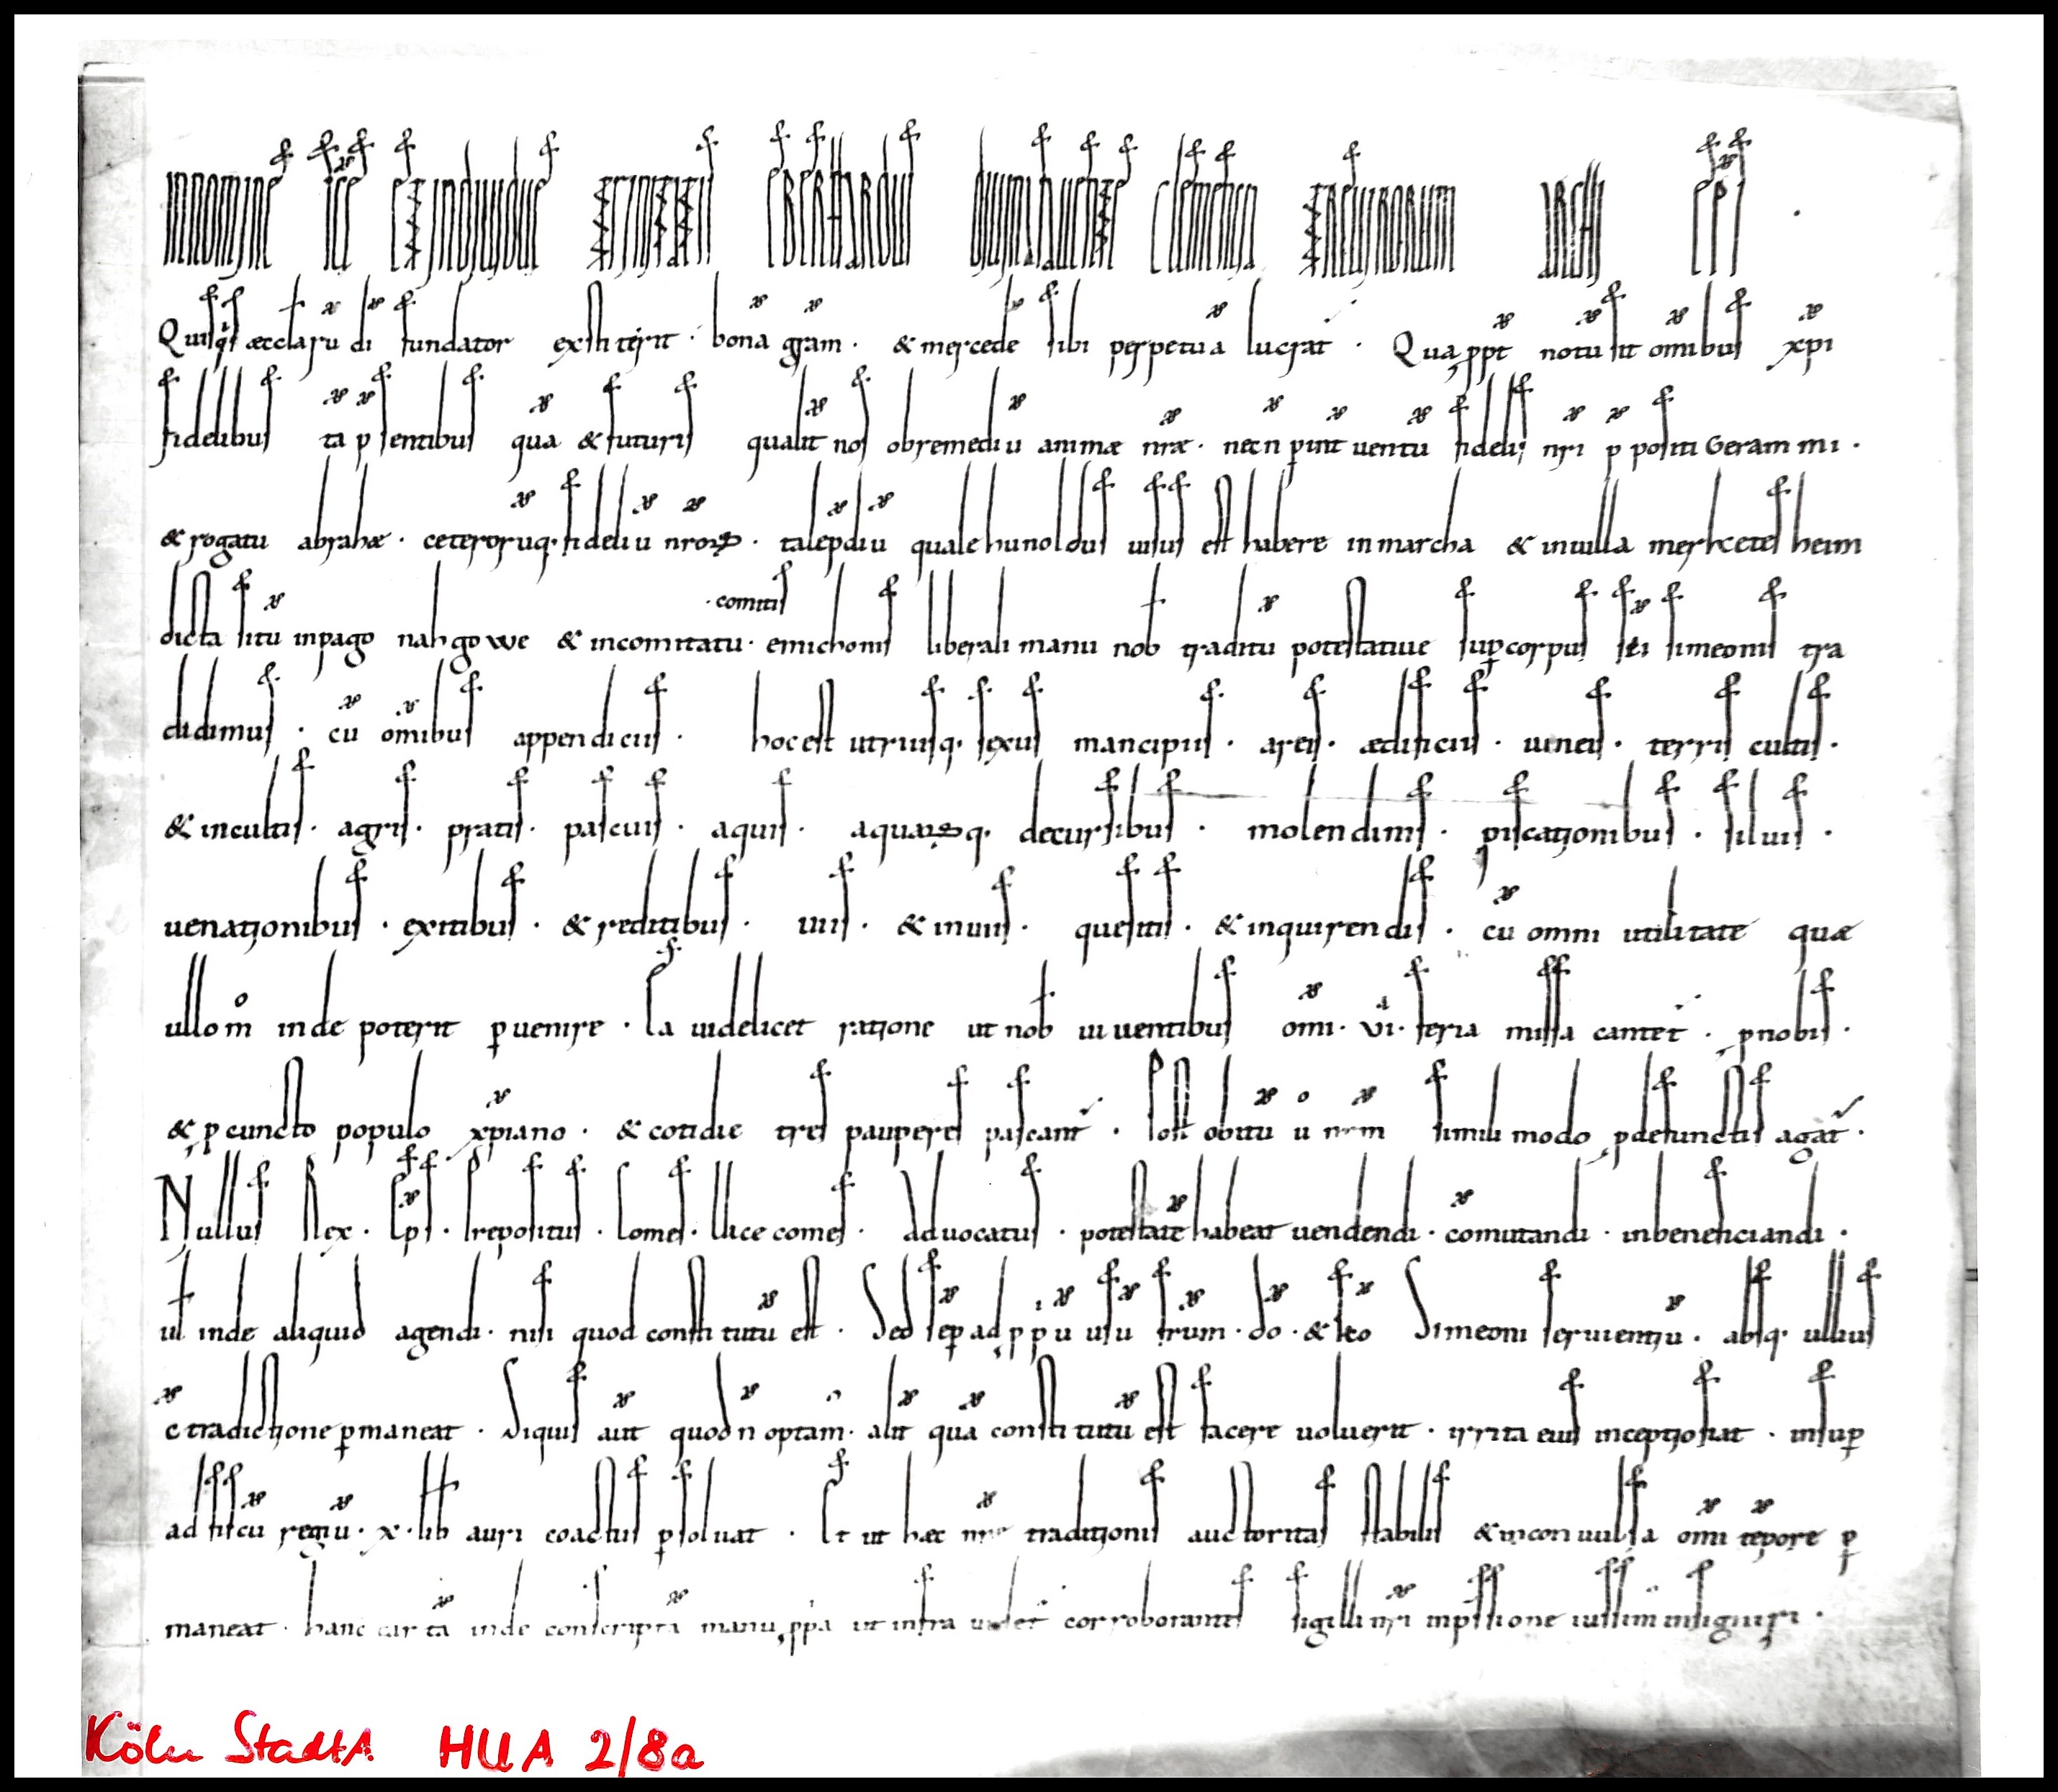 IN NOMINE SCE ET INDIVIDUE TRINITATIS EBERHARDUS DIVINA FAVENTE CLEMENTIA TREVIRORUM ARCHI EPS .
Quisq̇s æcclarū di fundator extiterit · bonā grām · & mercedē sibi perpetuā lucrat̄ · Qua ppt notū sit om̄ibus xp̄i
fidelibus tā p̄sentibus quā & futuris qualit̄ nos ob remediū animæ nr̄æ · nec n̄ p int̄uentū fidelis nr̄i p̄positi Gerammi ·
& rogatu abrahæ · ceterorūq· fideliū nroꝝ · talē p̄diū quale hunoldus uisus est habere in marcha & in uilla merhcetesheim
dicta sitū in pago nahgowe & in comitatu · emichonis · comitis liberali manu nob̄ traditū potestatiue sup corpus sc̄i simeonis tra
didimus · cū om̄ibus appendiciis · hoc est utriusq· sexus mancipiis · areis · ædificiis · uineis · terris cultis ·
& incultis · agris · pratis · pascuis · aquis · aquaꝝq· decursibus · molendinis · piscationibus · siluis ·
uenationibus · exitibus · & reditibus · uiis · & inuiis · quesitis · & inquirendis · cū omni utilitate quæ
ullo m̊ inde poterit ꝑuenire · Ea uidelicet ratione ut nob̄ uiuentibus om̄i · vi̇ · feria missa cantet̄ · p nobis ·
& p cuncto populo xp̄iano · & cotidie tres pauperes pascant̄ · Post obitū ů nr̄m simili modo p defunctis agat̄ ·
Nullus Rex · Ep̄s · Prepositus · Comes · Vice comes · Aduocatus · potestatē habeat uendendi · cōmutandi · inbeneficiandi ·
ul̄ inde aliquid agendi · nisi quod constitutū est · Sed semp ad ppⁱū usū fr̄um · do · & sc̄o Simeoni seruientiū · absq· ullius
c̄tradictione ꝑmaneat · Siquis aūt quod n̄ optam̂ · alit̄ quā constitutū est facere uoluerit · irrita eius inceptio fiat · insuꝑ
ad fiscū regiū · x · lib̄ auri coactus ꝑsoluat · Et ut hæc nr̄e traditionis auctoritas stabilis & inconuulsa om̄i tēpore ꝑ
maneat · hanc cartā inde conscriptā manu ppⁱa ut infra uidet̄ corroborantes sigilli nr̄i imp̄ssione iussim̄ insigniri ·
Köln StadtA HUA 2/8a